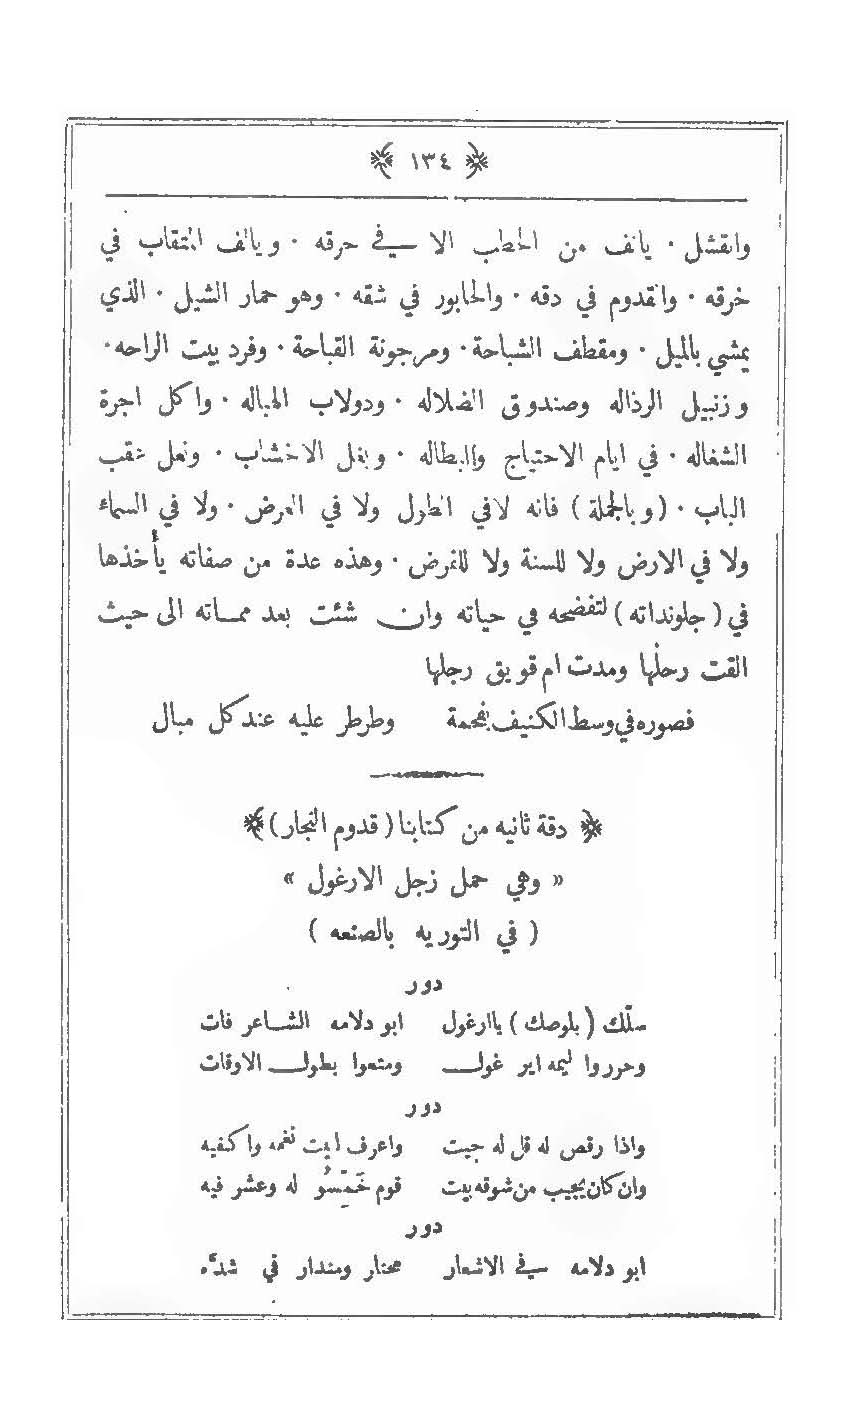 ﴿ ١٣٤ ﴾
وانقشل · يانف من الحطب الا في حرقه · ويالف المتقاب في
خرقه · والقدوم في دقه · والخابور في شقه · وهو حمار الشيل · الذي
يمشي بالميل · ومقطف الشباحة · ومرجونة القباحة · وفرد بيت الراحه ·
وزنبيل الرذاله وصندوق الضلاله · ودولاب الهباله · واكل اجرة
الشغاله · في ايام الاحتياج والبطاله · وبغل الاخشاب · ونعل عقب
الباب · (وبالجملة) فانه لافي الطول ولا في العرض · ولا في السماء
ولا في الارض ولا للسنة ولا للفرض · وهذه عدة من صفاته يأخذها
في (جلونداته) لتفضحه في حياته وان شئت بعد مماته الى حيث
القت رحلها ومدت ام قويق رجلها
فصوره في وسط الكنيف بفحمة وطرطر عليه عند كل مبال
﴿ دقة ثانيه من كتابنا (قدوم النجار) ﴾
« وهي حمل زجل الارغول »
(في التوريه بالصنعه)
دور
سلّك (بلوصك) ياارغول ابو دلامه الشاعر فات
وحرروا ليمه اير غول ومتعوا بطول الاوقات
دور
واذا رقص له قل له جيت واعرف ايت نغمه واكفيه
وان كان يجيب من شوقه بيت قوم خَمِّسُو له وعشر فيه
دور
ابو دلامه في الاشعار محتار ومندار في شدّه